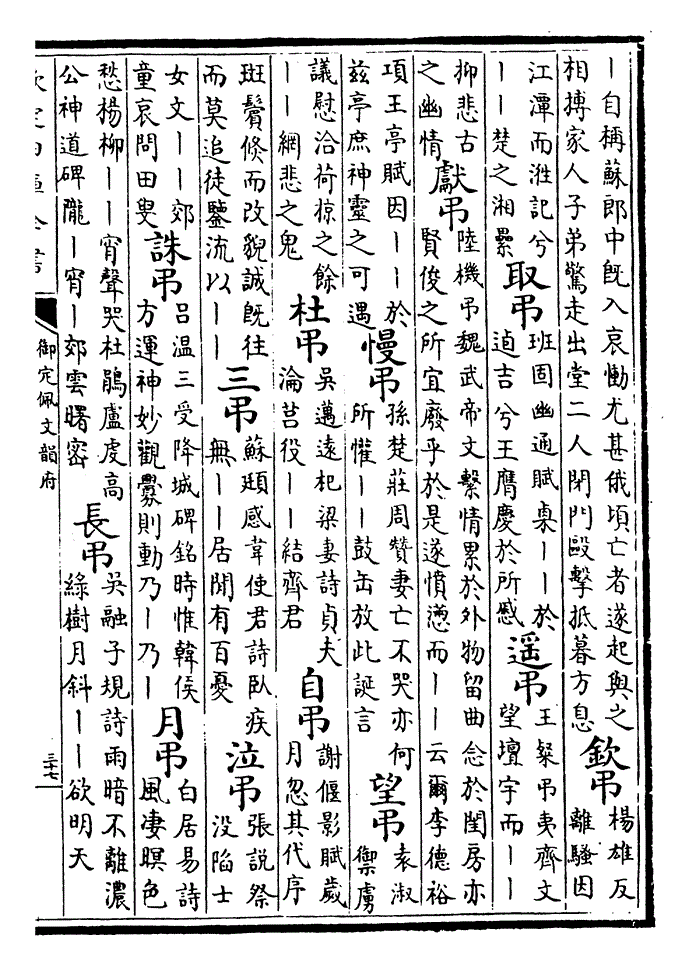 丨自稱蘇郎中既入哀慟尤甚俄頃亡者遂起與之
相搏家人子弟驚走出堂二人閉門毆擊抵暮方息
欽弔
楊雄反
離騷因
江潭而淮記兮
丨丨楚之湘纍
取弔
班固幽通賦㮚丨丨於
逌吉兮王膺慶於所慼
遥弔
王粲弔夷齊文
望壇宇而丨丨
抑悲古
之幽情
獻弔
陸機弔魏武帝文繫情累於外物留曲念於閨房亦
賢俊之所宜廢乎於是遂憤懣而丨丨云爾李德裕
項王亭賦因丨丨於
兹亭庶神靈之可遇
慢弔
孫楚莊周贊妻亡不哭亦何
所懽丨丨鼓缶放此誕言
望弔
袁淑
禦虜
議慰洽荷掠之餘
丨丨網悲之鬼
杜弔
吳邁遠杞梁妻詩貞夫
淪莒役丨丨結齊君
自弔
謝偃影賦歲
月忽其代序
斑鬢倏而改貌誠既往
而莫追徒鑒流以丨丨
三弔
蘇頲感韋使君詩臥疾
無丨丨居閒有百憂
泣弔
張說祭
没陷士
女文丨丨郊
童哀問田叟
誅弔
吕温三受降城碑銘時惟韓侯
方運神妙觀釁則動乃丨乃丨
月弔
白居易詩
風凄暝色
愁楊柳丨丨宵聲哭杜鵑盧虔高
公神道碑隴丨宵丨郊雲曙密
長弔
吳融子規詩雨暗不離濃
綠樹月斜丨丨欲明天
御定佩文韻府
三十七